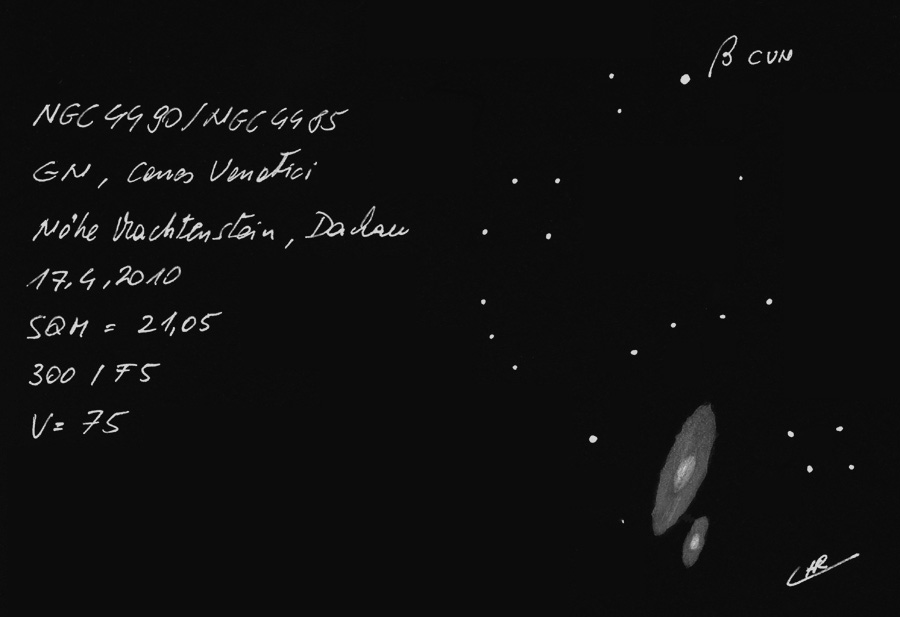 NGC 4490/NGC 4485
GN, Canes Venatici
Nähe Wachtenstein, Dachau
17.4.2010
SQM = 21,05
300 / F5
V= 75
β CVN
HR